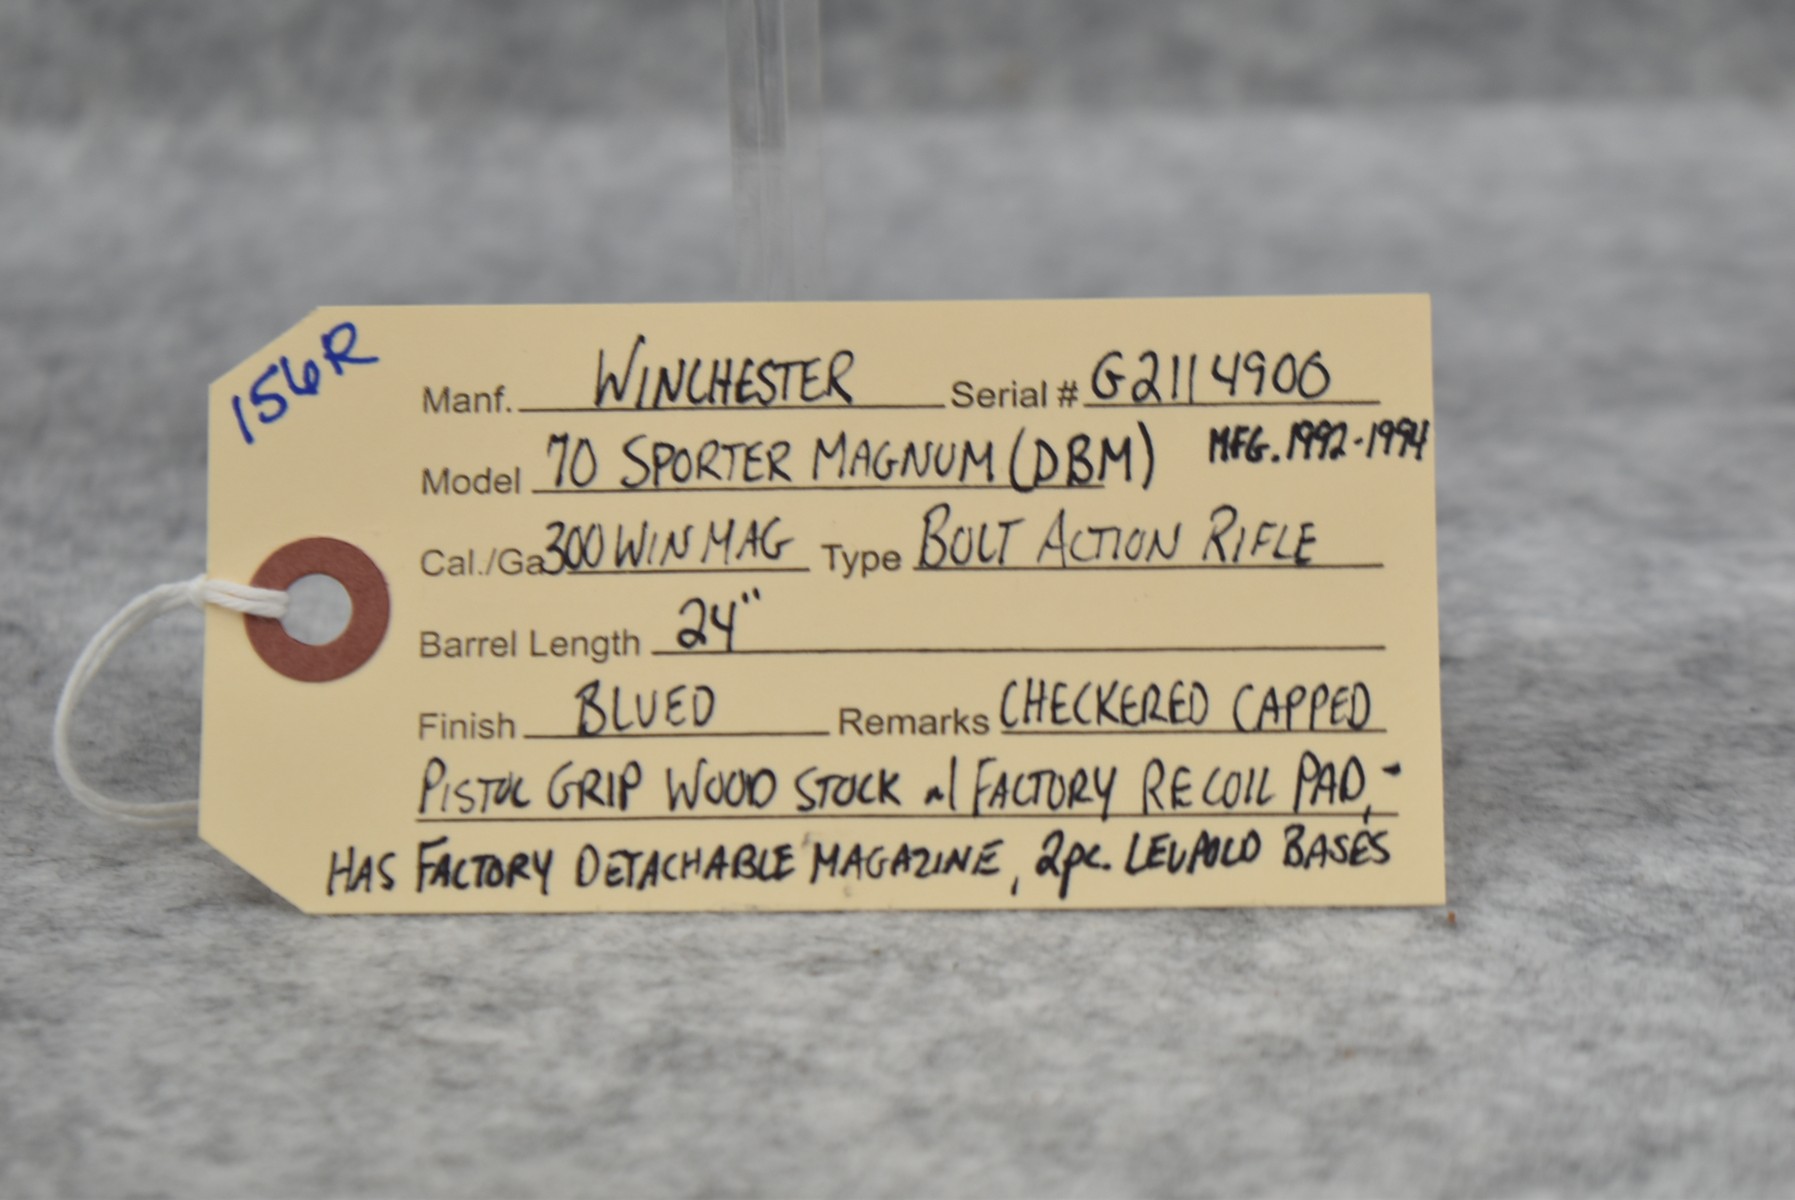 156R
Manf. WINCHESTER Serial # G2114900
Model 70 SPORTER MAGNUM (DBM) MFG. 1992-1994
Cal./Ga 300 WIN MAG Type BOLT ACTION RIFLE
Barrel Length 24"
Finish BLUED Remarks CHECKERED CAPPED
PISTOL GRIP WOOD STOCK w/ FACTORY RECOIL PAD, -
HAS FACTORY DETACHABLE MAGAZINE, 2pc. LEUPOLD BASES